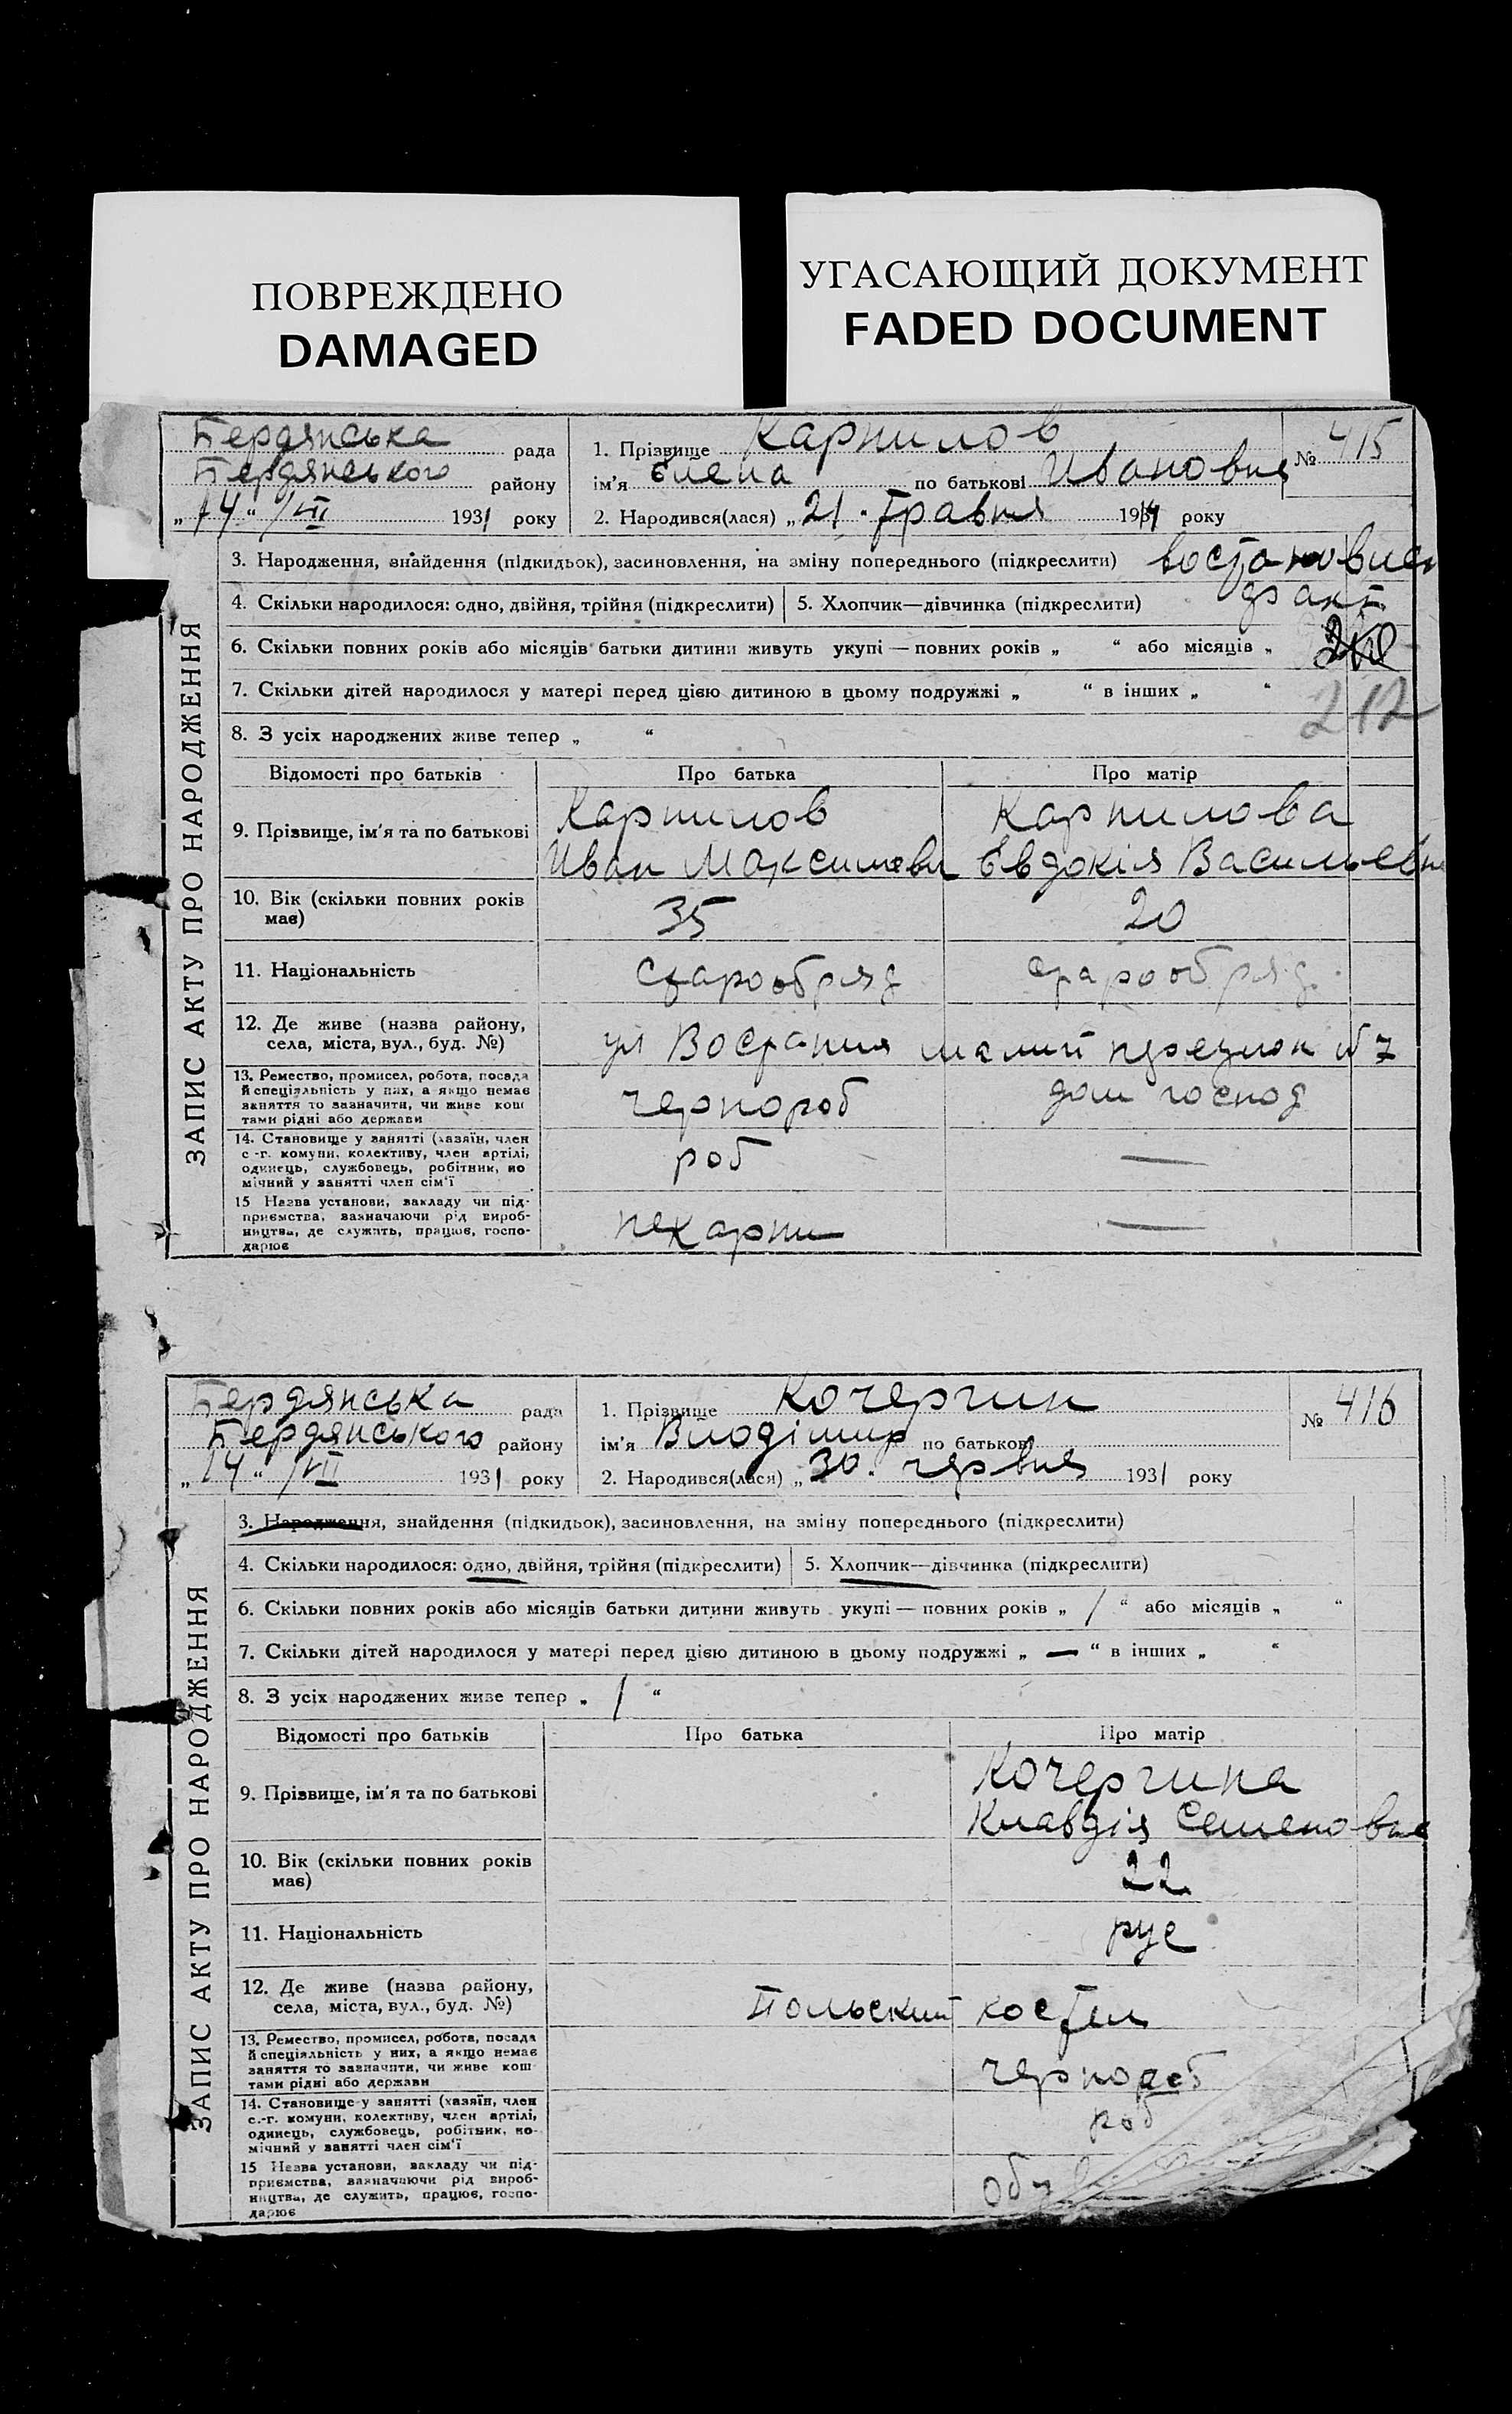 ПОВРЕЖДЕНО
DAMAGED
УГАСАЮЩИЙ ДОКУМЕНТ
FADED DOCUMENT
ЗАПИС АКТУ ПРО НАРОДЖЕННЯ
Бердянська рада
Бердянського району
„14“ /VII 1931 року
1. Прізвище Карпилов
ім'я Єлена по батькові Ивановна
№ 415
2. Народився(лася) „21. Травня 19 року
3. Народження, знайдення (підкидьок), засиновлення, на зміну попереднього (підкреслити)
4. Скільки народилося: одно, двійня, трійня (підкреслити) 5. Хлопчик—дівчинка (підкреслити) факт
6. Скільки повних років або місяців батьки дитини живуть укупі — повних років „ “ або місяців „
7. Скільки дітей народилося у матері перед цією дитиною в цьому подружжі „ “ в інших „ “
212
8. З усіх народжених живе тепер „ “
Відомості про батьків Про батька Про матір
9. Прізвище, ім'я та по батькові
Карпилов Карпилова
Иван Максимови Євдокія Васильевн
10. Вік (скільки повних років має) 35 20
11. Національність старообряд старообряд.
12. Де живе (назва району, села, міста, вул., буд. №)
ул Востания малий № 7
13. Ремество, промисел, робота, посада
й спеціяльність у них, а якщо немає
заняття то зазначити, чи живе кош
тами рідні або держави
чернороб дом господ
14. Становище у занятті (хазяїн, член
с.-г. комуни, колективу, член артілі,
одинець, службовець, робітник, по
мічний у занятті член сім'ї
роб —
15 Назва установи, закладу чи під-
приємства, зазначаючи рід вироб-
ництва, де служить, працює, госпо-
дарює
пекарни —
ЗАПИС АКТУ ПРО НАРОДЖЕННЯ
Бердянська рада
Бердянського району
„14“ /VII 1931 року
1. Прізвище Кочергин
ім'я Влодімир по батькові
№ 416
2. Народився(лася) „30. червня 1931 року
3. Народження, знайдення (підкидьок), засиновлення, на зміну попереднього (підкреслити)
4. Скільки народилося: одно, двійня, трійня (підкреслити) 5. Хлопчик—дівчинка (підкреслити)
6. Скільки повних років або місяців батьки дитини живуть укупі — повних років „ / “ або місяців „ “
7. Скільки дітей народилося у матері перед цією дитиною в цьому подружжі „ — “ в інших „ “
8. З усіх народжених живе тепер „ / “
Відомості про батьків Про батька Про матір
9. Прізвище, ім'я та по батькові
Кочергина
Клавдія Семеновна
10. Вік (скільки повних років має) 22
11. Національність рус
12. Де живе (назва району, села, міста, вул., буд. №)
Польский костел
13. Ремество, промисел, робота, посада
й спеціяльність у них, а якщо немає
заняття то зазначити, чи живе кош
тами рідні або держави
чернороб
14. Становище у занятті (хазяїн, член
с.-г. комуни, колективу, член артілі,
одинець, службовець, робітник, по-
мічний у занятті член сім'ї
роб
15 Назва установи, закладу чи під-
приємства, зазначаючи рід вироб-
ництва, де служить, працює, госпо-
дарює